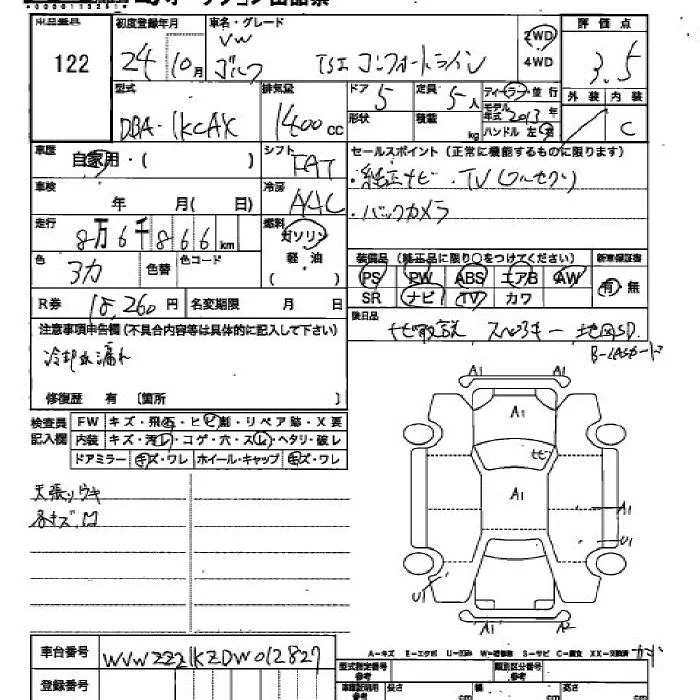 122
初度登録年月
24年10月
車名・グレード
VW
ゴルフ TSI コンフォートライン
2WD
4WD
評価点
3.5
外装 内装
C
型式
DBA-1KCAX
排気量
1400cc
ドア 5
定員 5人
ティーラー・並行
モデル年式 2013年
形状
積載 kg
ハンドル 左・右
車歴
自家用・( )
シフト
FAT
セールスポイント(正常に機能するものに限ります)
・純正ナビ・TV(フルセグ)
・バックカメラ
車検
年 月( 日)
冷房
AAC
走行
8万6千866km
燃料
ガソリン
軽・油
( )
色
シカ
色替
色コード
装備品(純正品に限り○をつけてください)
新車保証書
PS PW ABS エアB AW
SR ナビ TV カワ
有・無
R券 18,260円
名変期限 月 日
後日品
注意事項申告欄(不具合内容等は具体的に記入して下さい)
冷却水漏れ
修復歴 有 〔箇所 〕
検査員記入欄
FW キズ・飛石・ヒビ割・リペア跡・X要
内装 キズ・汚レ・コゲ・穴・スレ・ヘタリ・破レ
ドアミラー キズ・ワレ ホイール・キャップ キズ・ワレ
天張りウキ
各キズ、凹
A1
A1
A1
A1
U1
U1
A1
A2
A-キズ E-エクボ U-凹み W-補修跡 S-サビ C-腐食 XX-交換済
車台番号
WVWZZZ1KZDW012827
登録番号
型式指定番号 参考
類別区分番号 参考
長さ cm
幅 cm
高さ cm